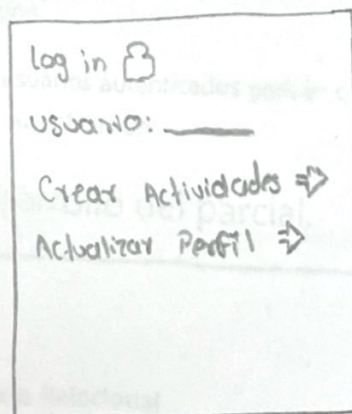 log in
usuario: ______
Crear Actividades ⇒
Actualizar Perfil ⇒